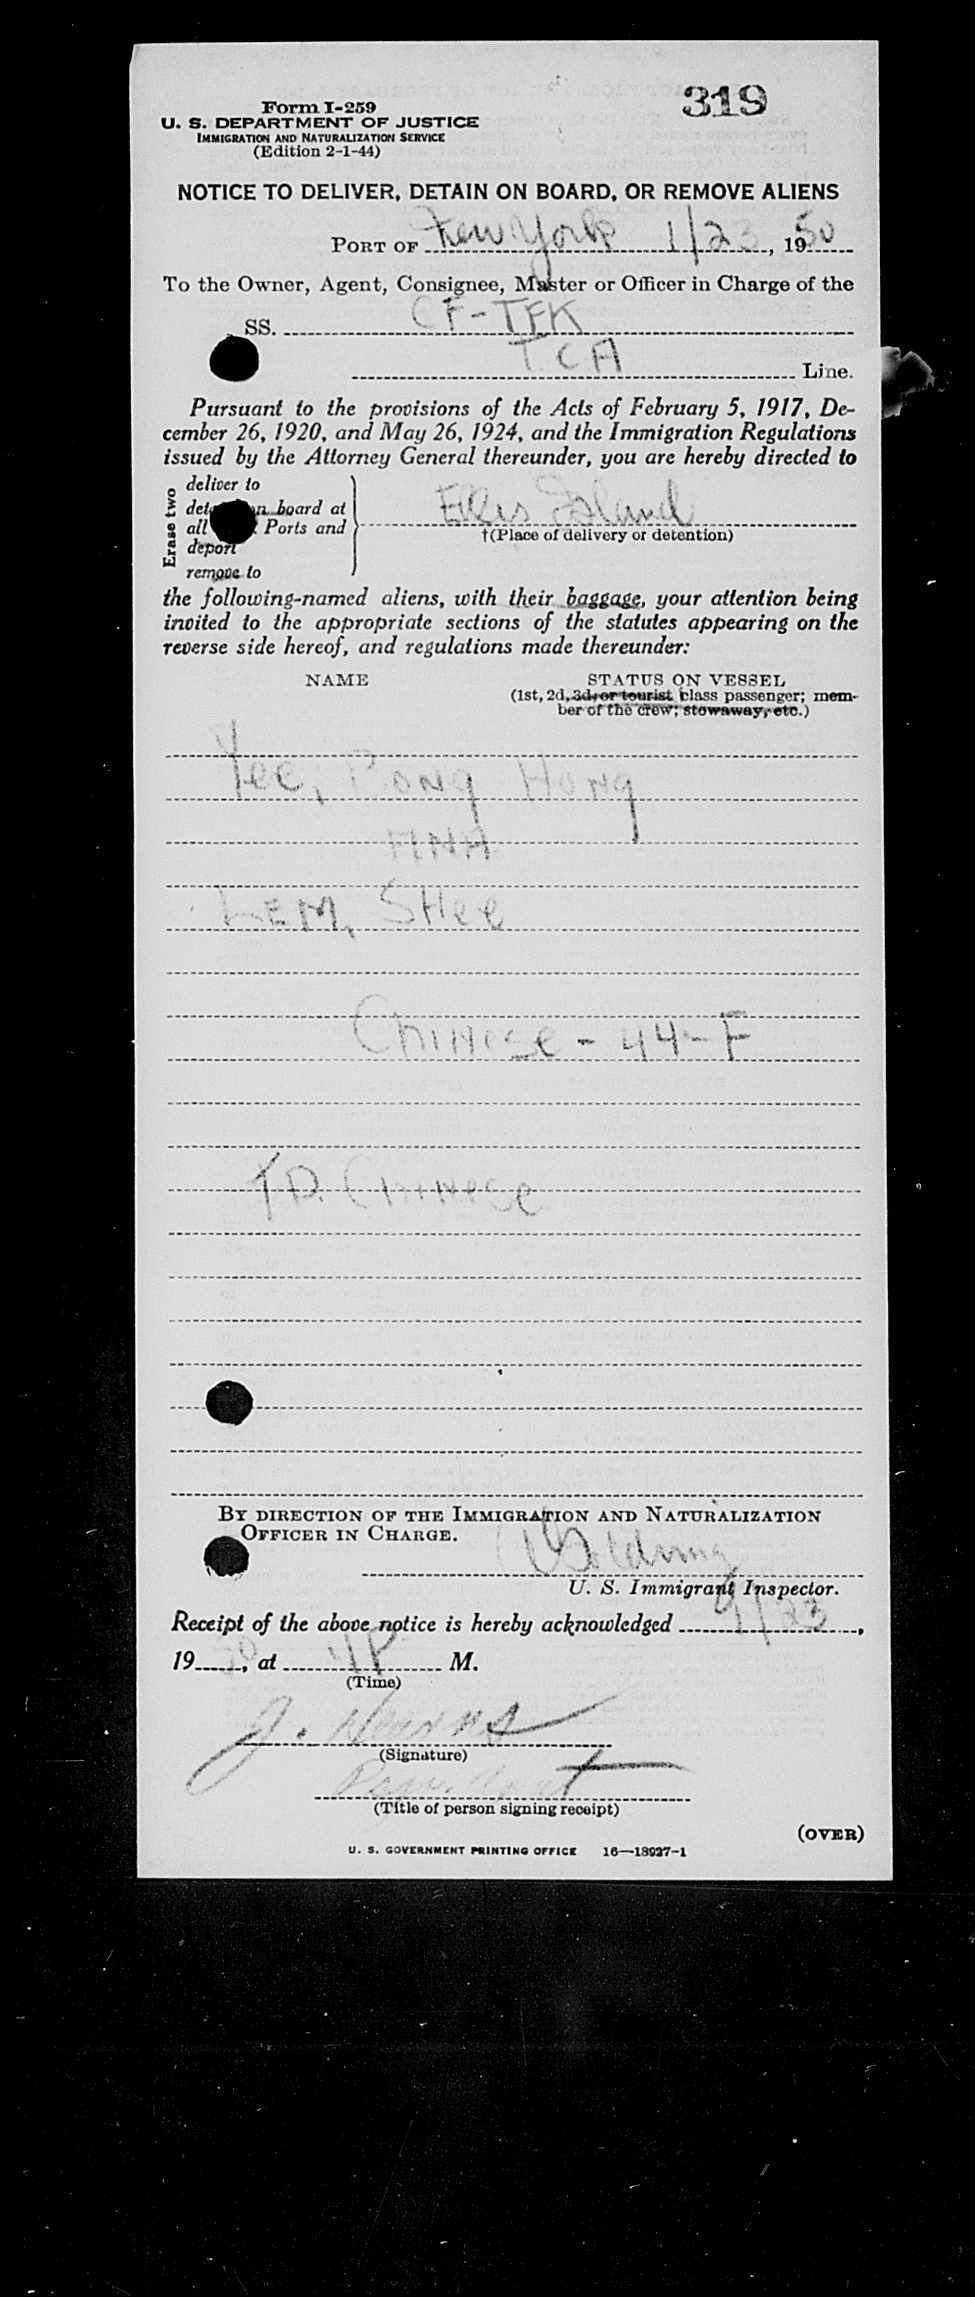 319
Form I-259
U. S. DEPARTMENT OF JUSTICE
IMMIGRATION AND NATURALIZATION SERVICE
(Edition 2-1-44)
NOTICE TO DELIVER, DETAIN ON BOARD, OR REMOVE ALIENS
PORT OF New York 1/23, 1950
To the Owner, Agent, Consignee, Master or Officer in Charge of the
SS. CF-TFK
TCA Line.
Pursuant to the provisions of the Acts of February 5, 1917, De-
cember 26, 1920, and May 26, 1924, and the Immigration Regulations
issued by the Attorney General thereunder, you are hereby directed to
Erase two
deliver to
board at
all Ports and
deport
remove to
Ellis Island
†(Place of delivery or detention)
the following-named aliens, with their baggage, your attention being
invited to the appropriate sections of the statutes appearing on the
reverse side hereof, and regulations made thereunder:
NAME STATUS ON VESSEL
(1st, 2d, 3d, or tourist class passenger; mem-
ber of the crew; stowaway, etc.)
Yee, Bong Hong
AKA
LEM, SHee
CHINese - 44 - F
T.D. CHINese
BY DIRECTION OF THE IMMIGRATION AND NATURALIZATION
OFFICER IN CHARGE.
U. S. Immigrant Inspector.
Receipt of the above notice is hereby acknowledged 1/23,
1950, at 4P M.
(Time)
J.
(Signature)
(Title of person signing receipt)
(OVER)
U. S. GOVERNMENT PRINTING OFFICE 16—18927-1